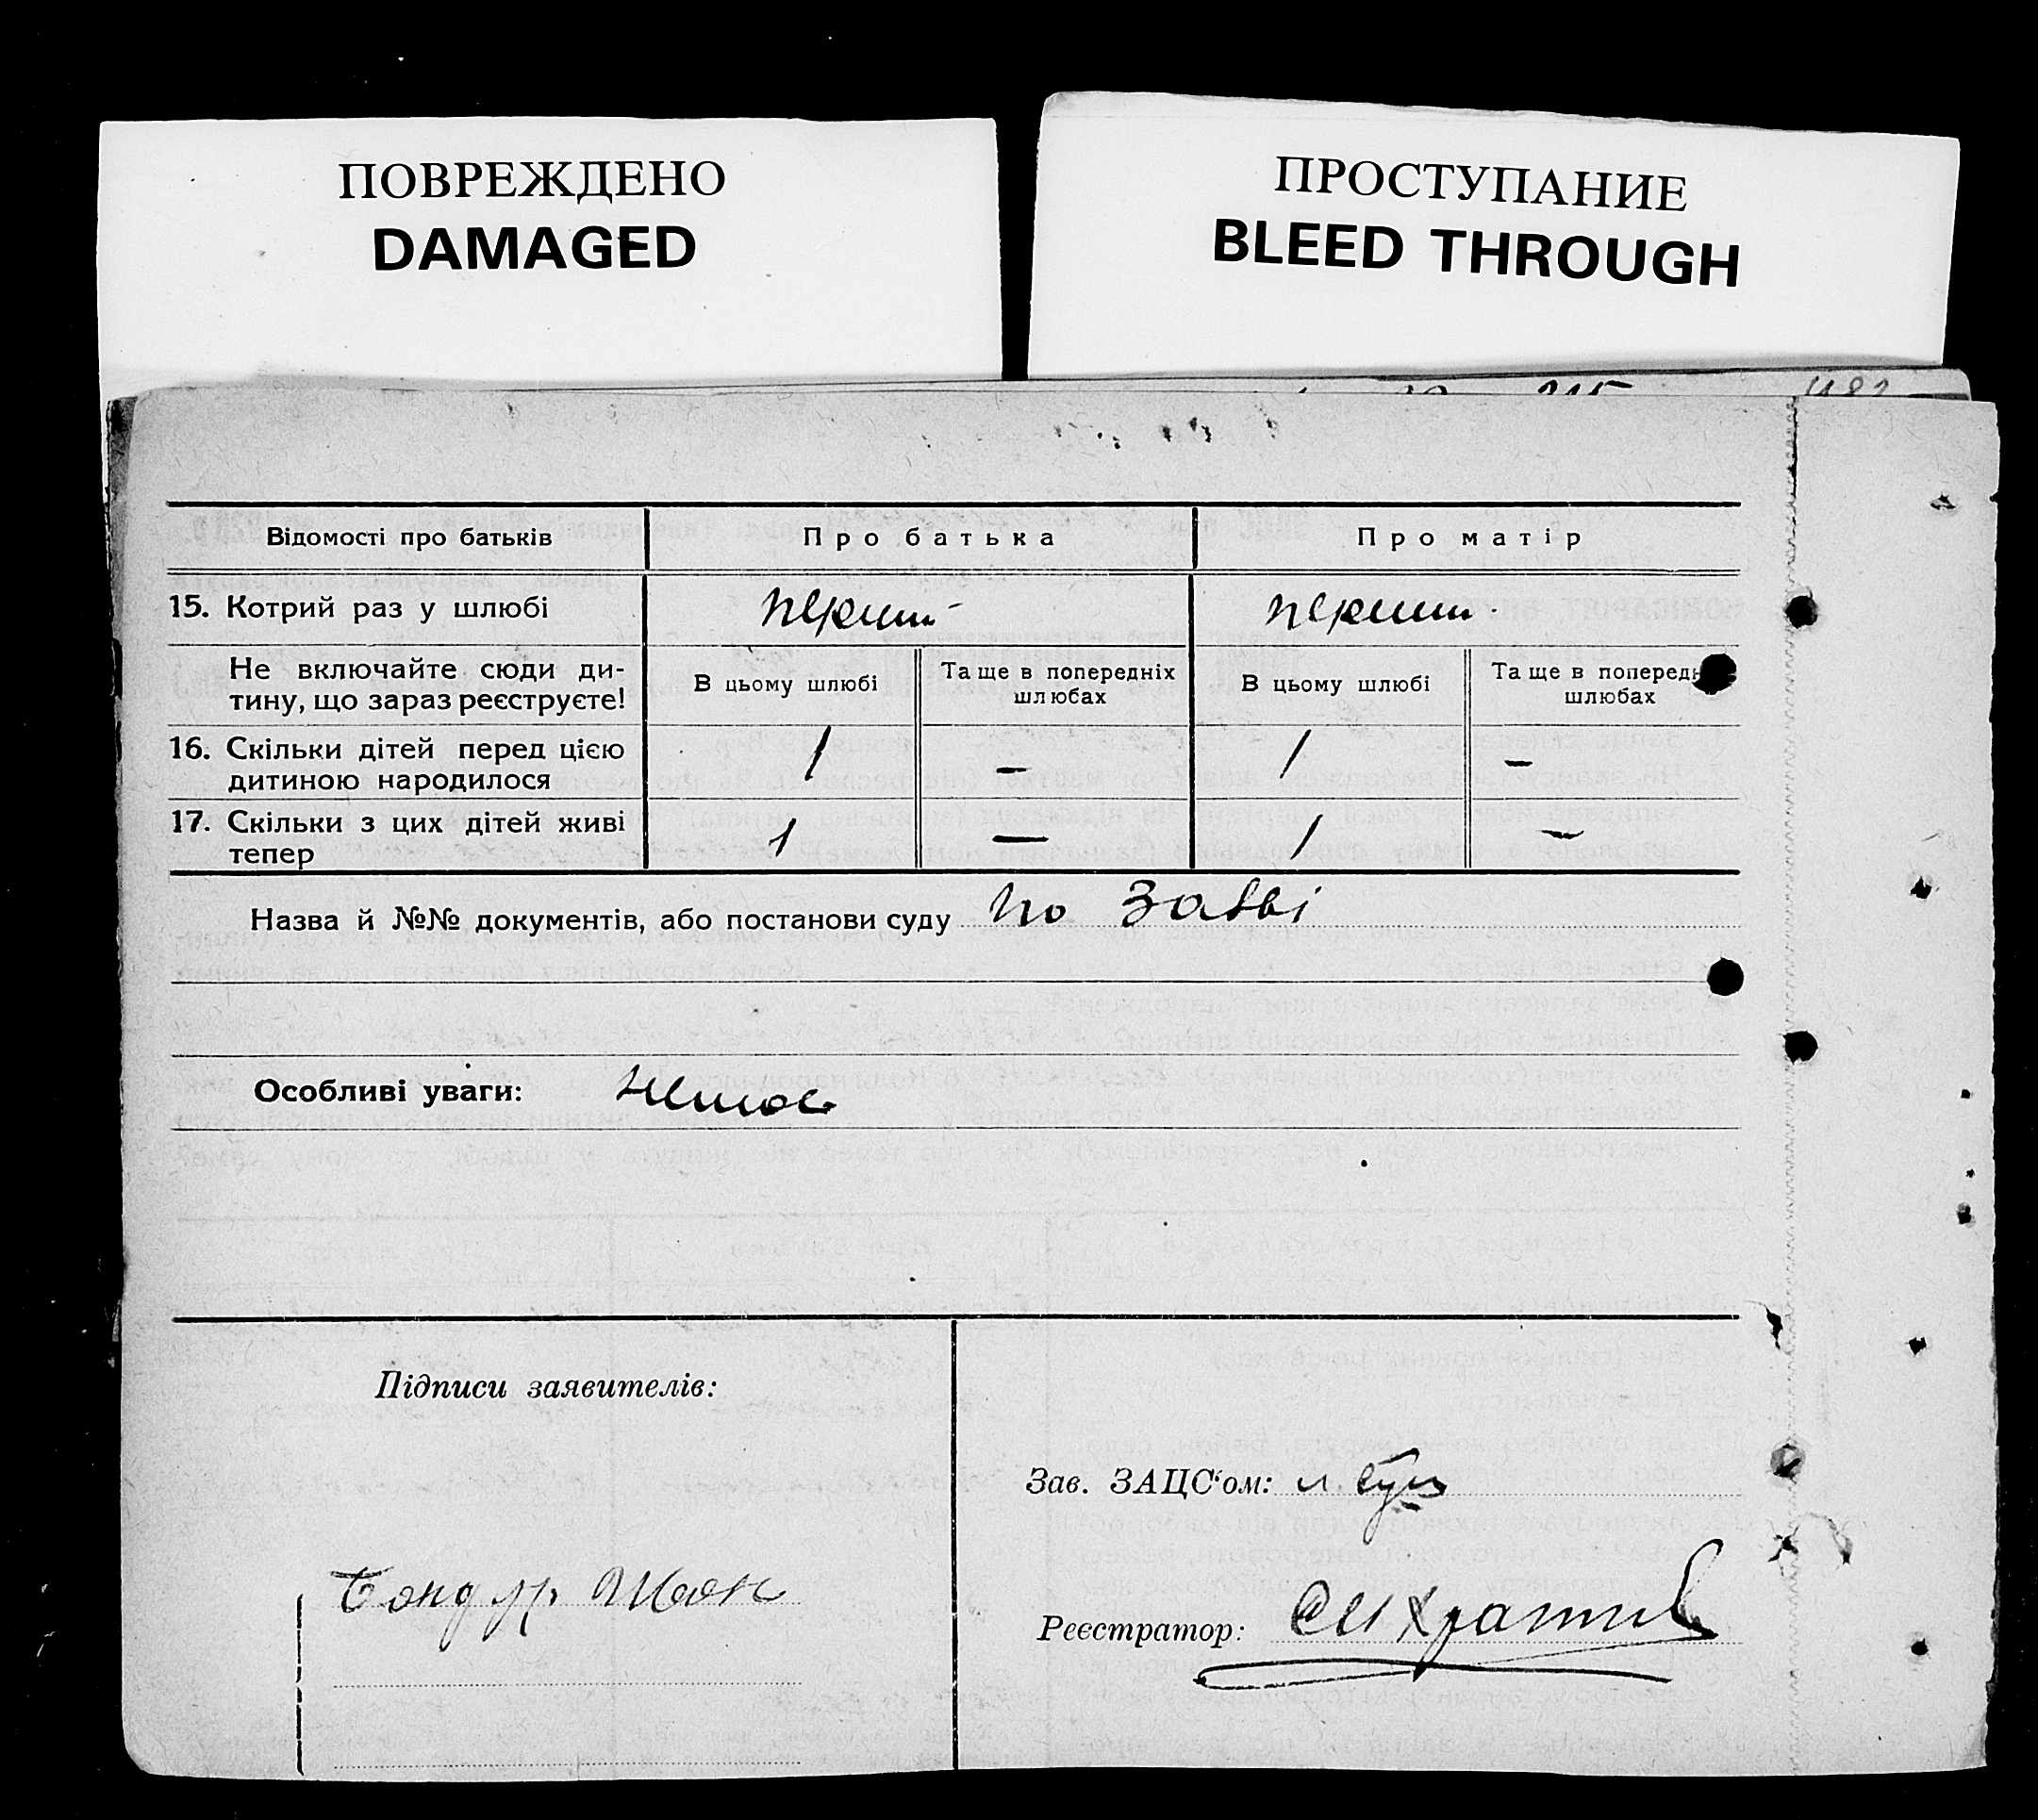 ПОВРЕЖДЕНО
DAMAGED
ПРОСТУПАНИЕ
BLEED THROUGH
Відомості про батьків
Про батька
Про матір
15. Котрий раз у шлюбі
перший
перший
Не включайте сюди ди-
тину, що зараз реєструєте!
В цьому шлюбі
Та ще в попередніх
шлюбах
В цьому шлюбі
Та ще в поперед
шлюбах
16. Скільки дітей перед цією
дитиною народилося
1
—
1
—
17. Скільки з цих дітей живі
тепер
1
—
1
—
Назва й №№ документів, або постанови суду по заяві
Особливі уваги: немає
Підписи заявителів:
Зав. ЗАЦС‘ом:
Бондар Иван
Реєстратор: